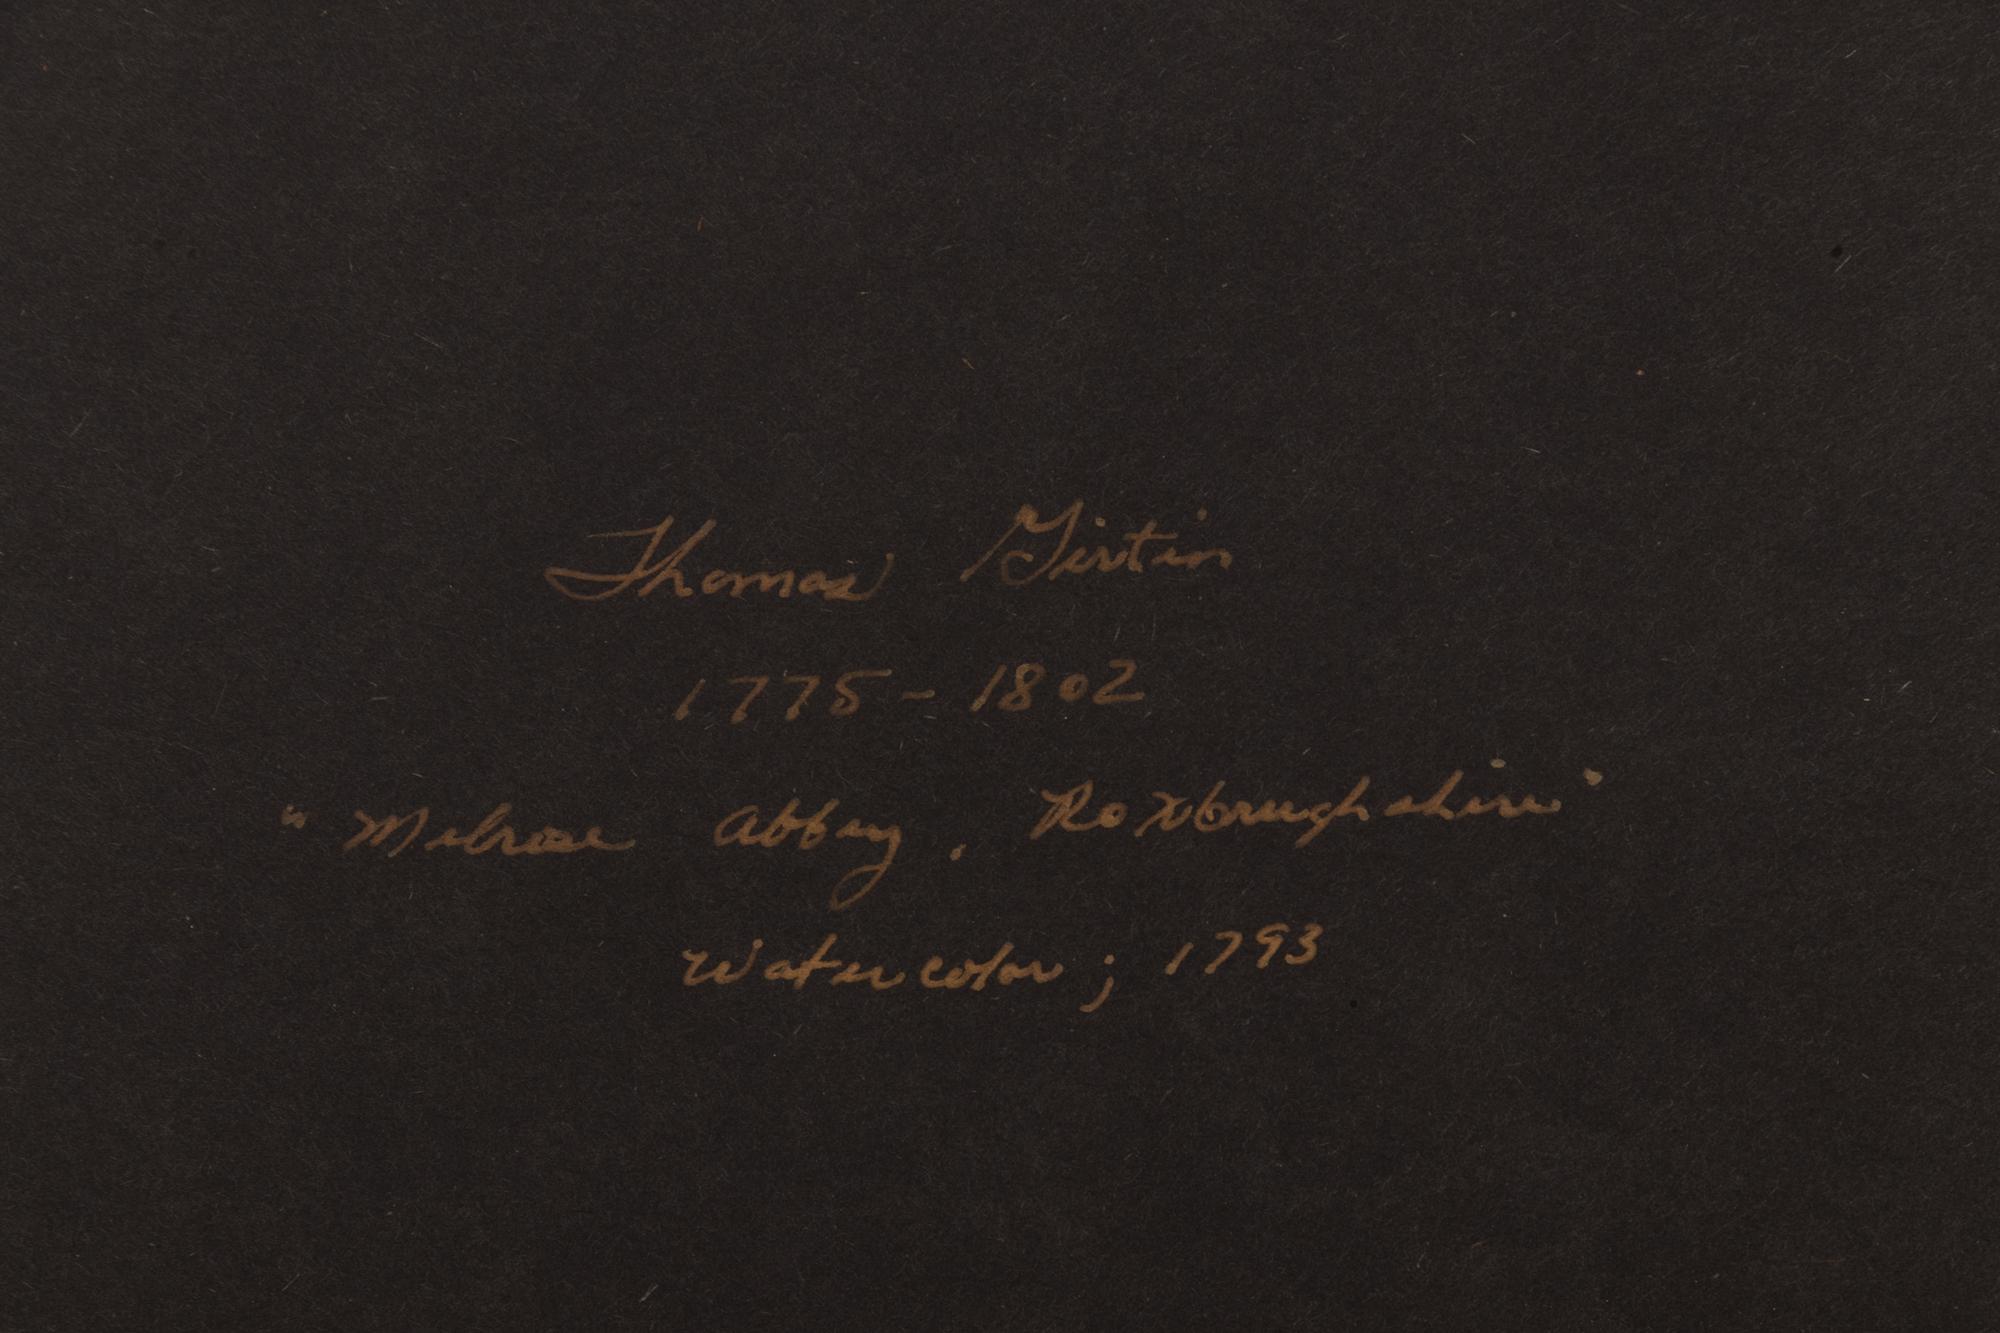 Thomas Girtin
1775 - 1802
"Melrose Abbey, Roxbrughshire"
Watercolor; 1793